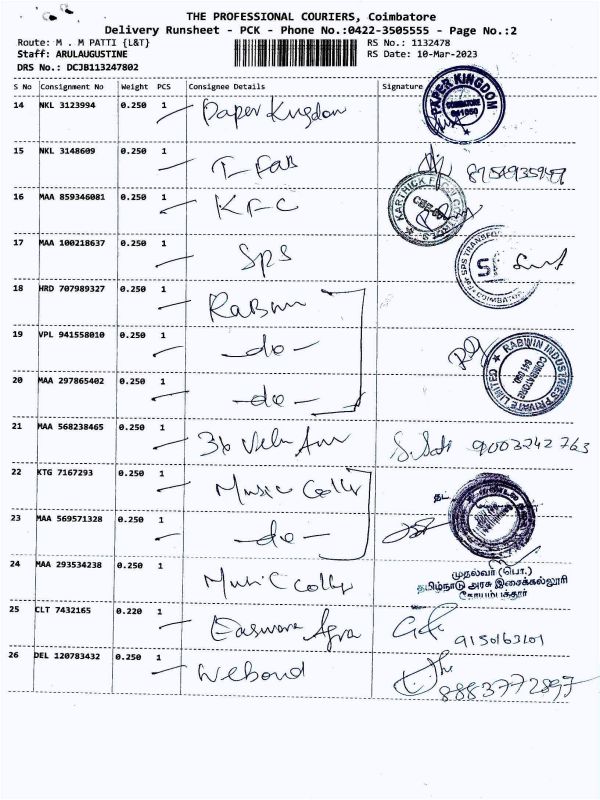 THE PROFESSIONAL COURIERS, Coimbatore
Delivery Runsheet - PCK - Phone No.:0422-3505555 - Page No.:2
Route: M . M PATTI {L&T} RS No.: 1132478
Staff: ARULAUGUSTINE RS Date: 10-Mar-2023
DRS No.: DCJB113247802
S No Consignment No Weight PCS Consignee Details Signature
14 NKL 3123994 0.250 1 Paper Kingdom PAPER KINGDOM COIMBATORE 641050
15 NKL 3148609 0.250 1 T Fab
16 MAA 859346081 0.250 1 KFC
17 MAA 100218637 0.250 1 SPS For SPS COIMBATORE
18 HRD 707989327 0.250 1 Rabwin
19 VPL 941558010 0.250 1 -do- RABWIN INDUSTRIES PRIVATE LIMITED COIMBATORE
20 MAA 297865402 0.250 1 -do-
21 MAA 568238465 0.250 1 9003242763
22 KTG 7167293 0.250 1 Music Collg
23 MAA 569571328 0.250 1 -do-
24 MAA 293534238 0.250 1 Music Collg முதல்வர் (பொ.)
தமிழ்நாடு அரசு இசைக்கல்லூரி
கோயம்புத்தூர்
25 CLT 7432165 0.220 1 Easwara Agra 9150163101
26 DEL 120783432 0.250 1 Webond 8883772897